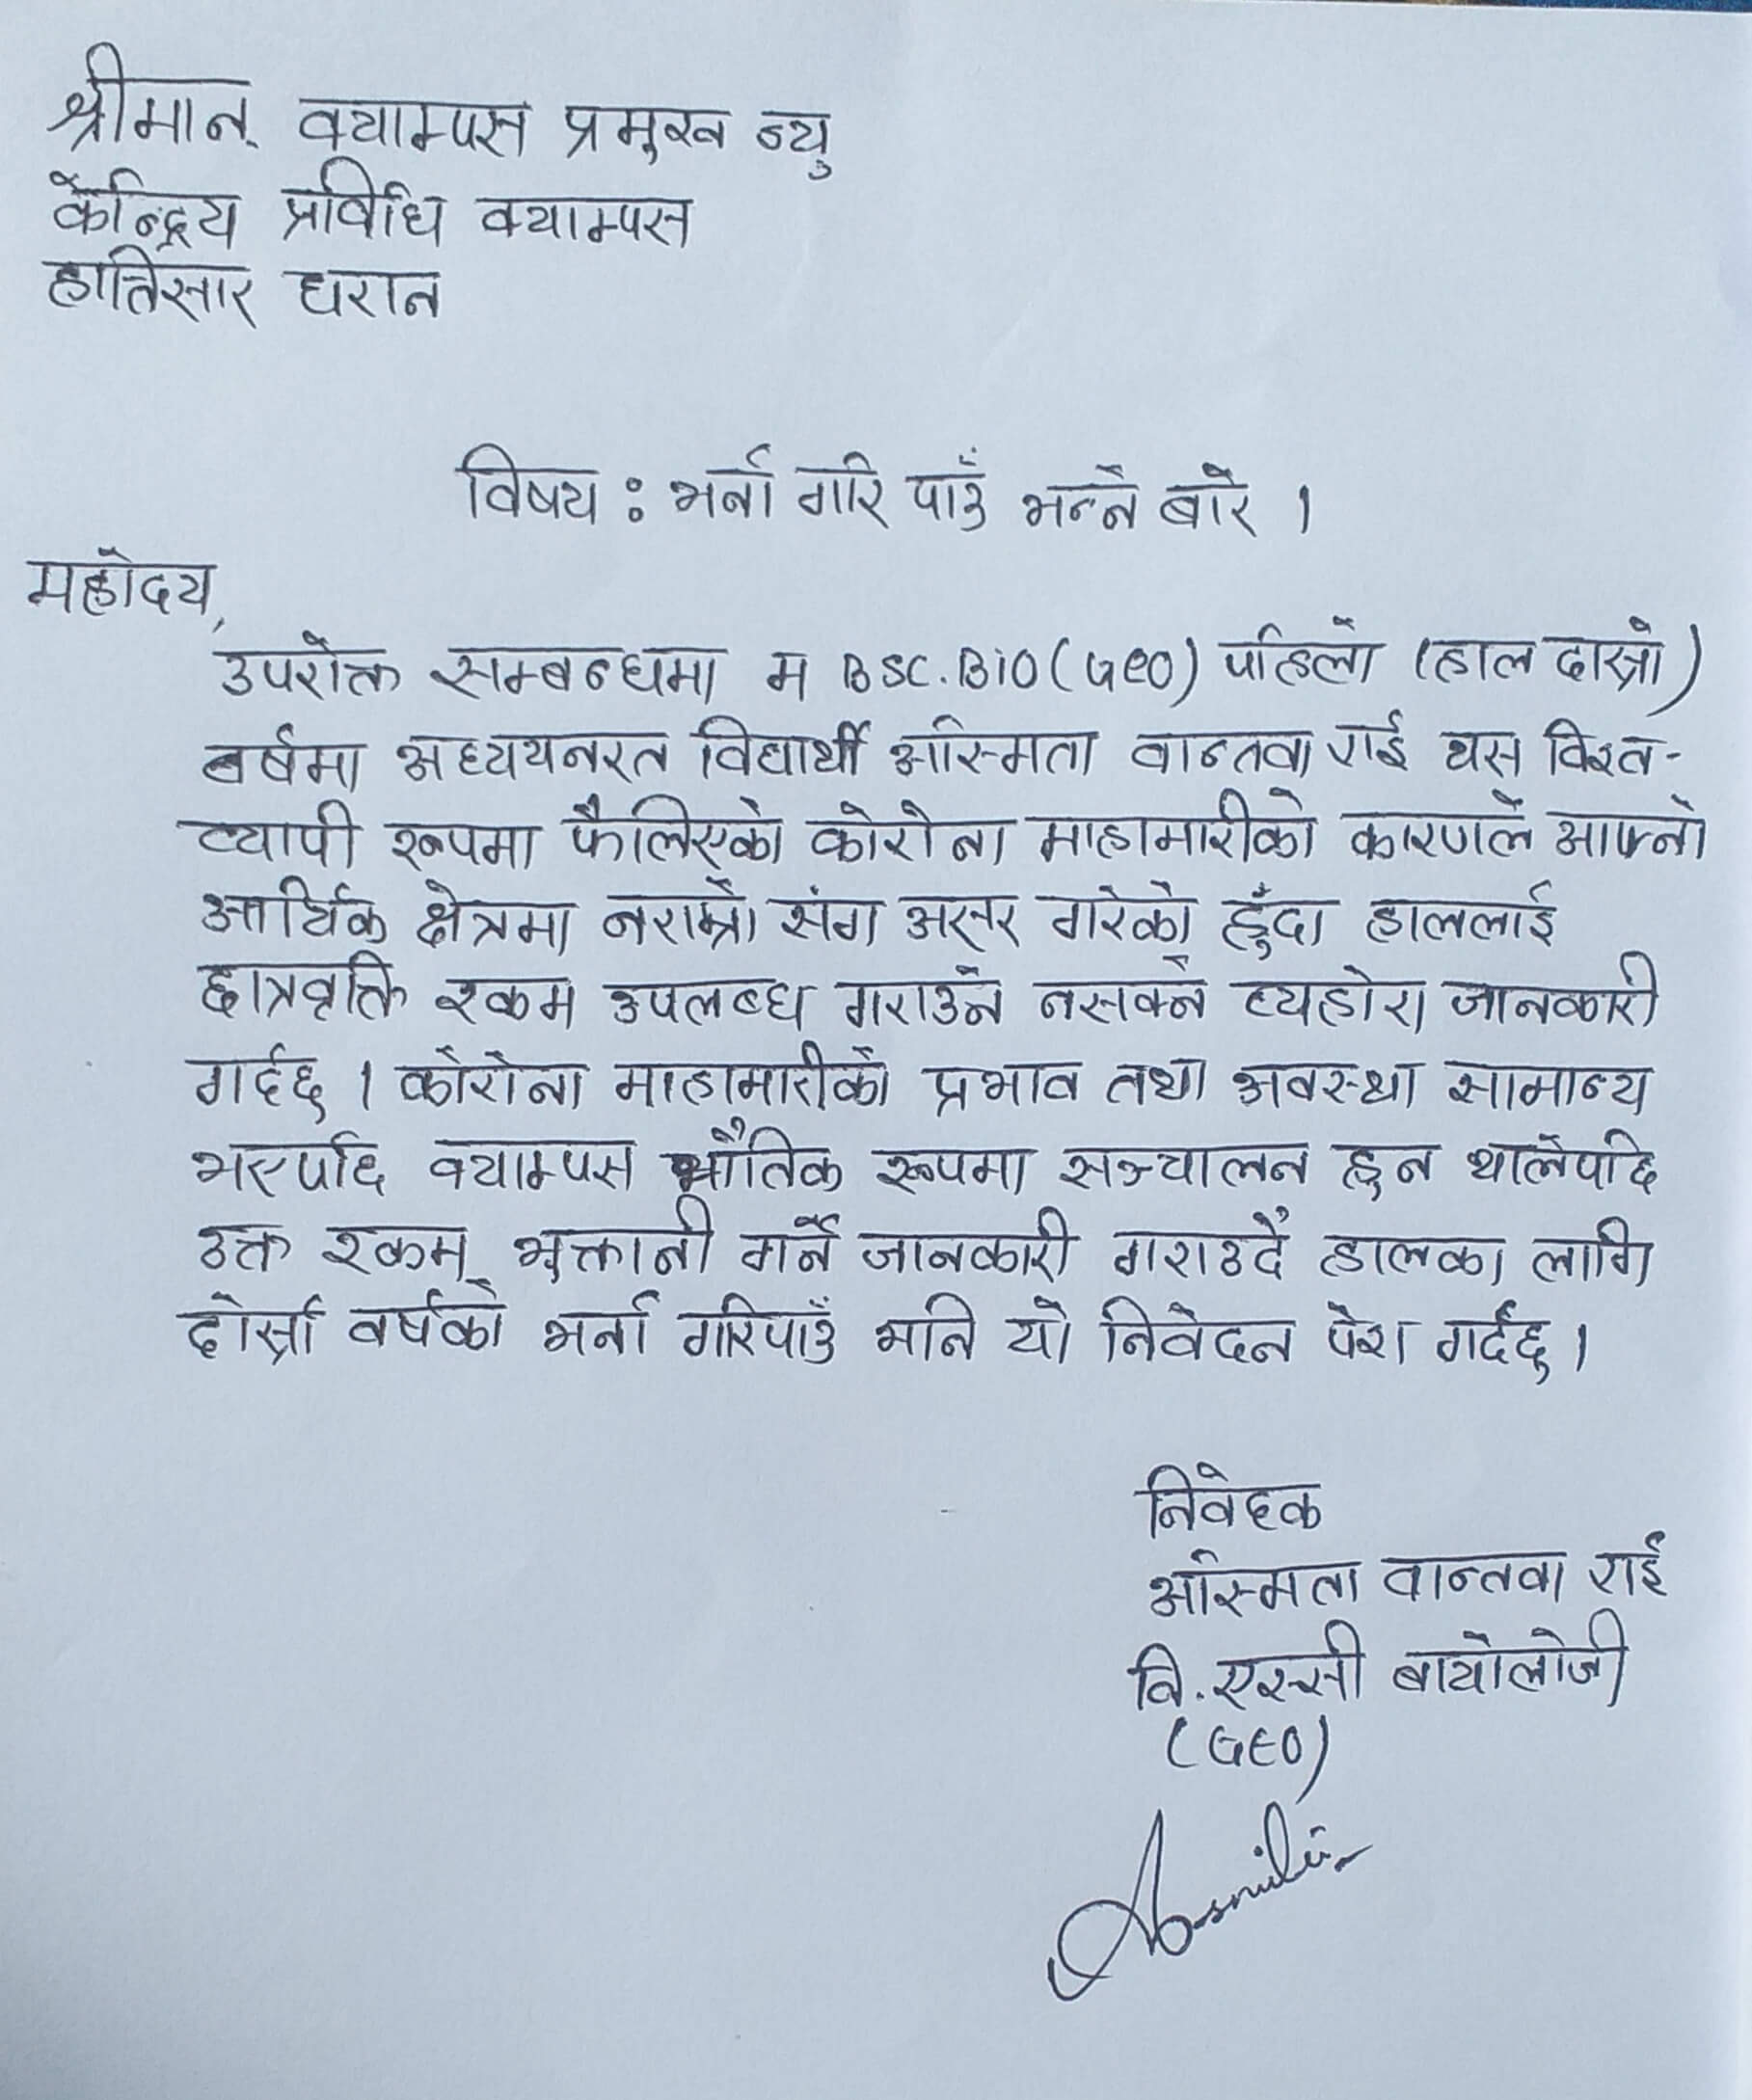 श्रीमान् क्याम्पस प्रमुख ज्यु
केन्द्रिय प्रविधि क्याम्पस
हात्तिसार धरान
विषय : भर्ना गरि पाउँ भन्ने बारे ।
महोदय,
उपरोक्त सम्बन्धमा म BSC.BIO(Geo) पहिलो (हाल दोस्रो)
बर्षमा अध्ययनरत विद्यार्थी अस्मिता वान्तवा राई यस विश्व-
व्यापी रूपमा फैलिएको कोरोना माहामारीको कारणले आफ्नो
आर्थिक क्षेत्रमा नराम्रो संग असर गरेको हुँदा हाललाई
छात्रवृत्ति रकम उपलब्ध गराउन नसक्ने व्यहोरा जानकारी
गर्दछु । कोरोना माहामारीको प्रभाव तथा अवस्था सामान्य
भएपछि क्याम्पस भौतिक रूपमा सञ्चालन हुन थालेपछि
उक्त रकम भुक्तानी गर्ने जानकारी गराउदै हालका लागि
दोस्रो वर्षको भर्ना गरिपाउँ भनि यो निवेदन पेश गर्दछु ।
निवेदक
अस्मिता वान्तवा राई
वि.एस्सी बायोलोजी
(GEO)
Asmita